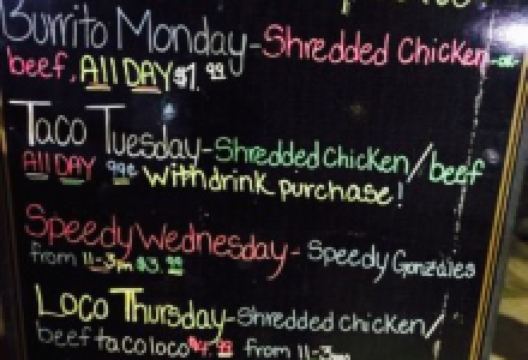 Burrito Monday-Shredded Chicken-or
beef, All DAY $1.99
Taco Tuesday-Shredded Chicken/beef
All DAY 99¢ with drink purchase!
Speedy Wednesday- Speedy Gonzales
from 11-3pm $3.99
Loco Thursday-Shredded Chicken/
beef taco loco from 11-3pm